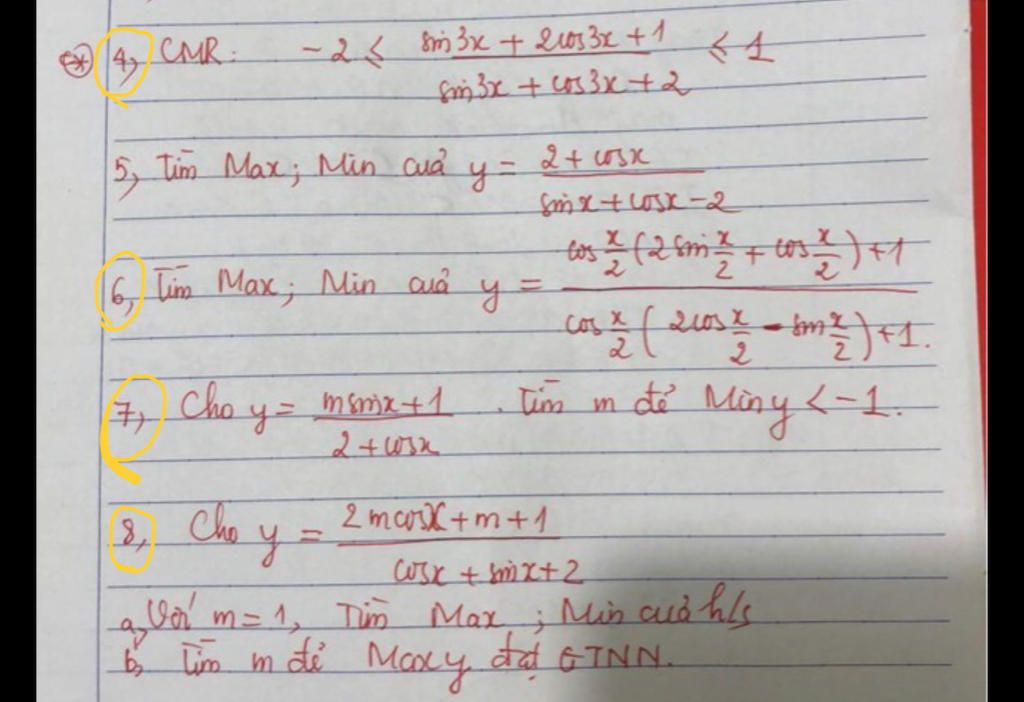 ⊛ 4, CMR: -2 ≤ (sin3x + 2cos3x + 1)/(sin3x + cos3x + 2) ≤ 1
5, Tìm Max; Min cuả y = (2 + cosx)/(sinx + cosx - 2)
6, Tìm Max; Min cuả y = (cos x/2 (2sin x/2 + cos x/2) + 1)/(cos x/2 (2cos x/2 - sin x/2) + 1).
7, Cho y = (msinx + 1)/(2 + cosx). Tìm m để Miny < -1.
8, Cho y = (2mcosx + m + 1)/(cosx + sinx + 2)
a, Với m = 1, Tìm Max; Min cuả h/s
b, Tìm m để Maxy đạt GTNN.